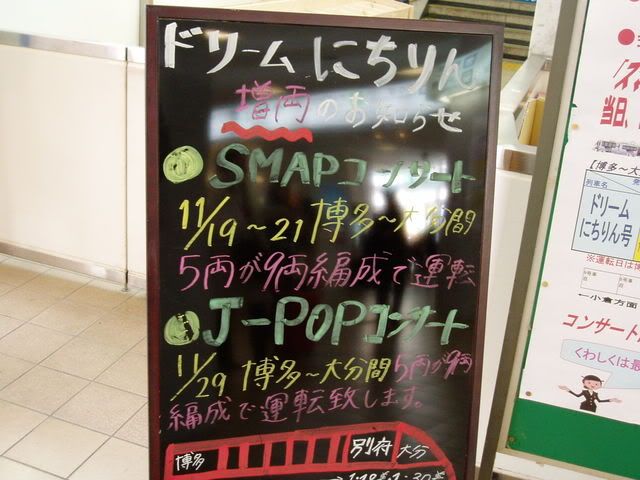 ドリームにちりん
増両のお知らせ
SMAPコンサート
11/19~21 博多~大分間
5両が9両編成で運転
J-POPコンサート
11/29 博多~大分間5両が9両
編成で運転致します。
博多 別府 大分
当日、
【博多~大
列車名
ドリーム
にちりん号
※運転日は
←小倉方面
コンサート
くわしくは